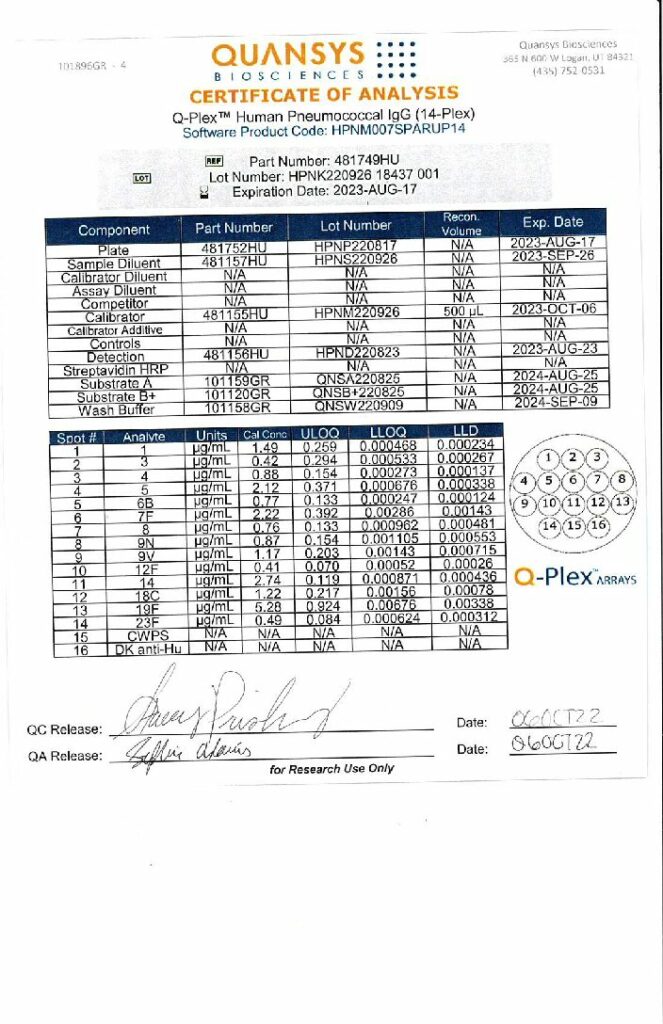 101896GR - 4
QUANSYS
BIOSCIENCES
Quansys Biosciences
365 N 600 W Logan, UT 84321
(435) 752-0531
CERTIFICATE OF ANALYSIS
Q-Plex™ Human Pneumococcal IgG (14-Plex)
Software Product Code: HPNM007SPARUP14
REF Part Number: 481749HU
LOT Lot Number: HPNK220926 18437 001
Expiration Date: 2023-AUG-17
Component Part Number Lot Number Recon. Volume Exp. Date
Plate 481752HU HPNP220817 N/A 2023-AUG-17
Sample Diluent 481157HU HPNS220926 N/A 2023-SEP-26
Calibrator Diluent N/A N/A N/A N/A
Assay Diluent N/A N/A N/A N/A
Competitor N/A N/A N/A N/A
Calibrator 481155HU HPNM220926 500 µL 2023-OCT-06
Calibrator Additive N/A N/A N/A N/A
Controls N/A N/A N/A N/A
Detection 481156HU HPND220823 N/A 2023-AUG-23
Streptavidin HRP N/A N/A N/A N/A
Substrate A 101159GR QNSA220825 N/A 2024-AUG-25
Substrate B+ 101120GR QNSB+220825 N/A 2024-AUG-25
Wash Buffer 101158GR QNSW220909 N/A 2024-SEP-09
Spot # Analyte Units Cal Conc ULOQ LLOQ LLD
1 1 µg/mL 1.49 0.259 0.000468 0.000234
2 3 µg/mL 0.42 0.294 0.000533 0.000267
3 4 µg/mL 0.88 0.154 0.000273 0.000137
4 5 µg/mL 2.12 0.371 0.000676 0.000338
5 6B µg/mL 0.77 0.133 0.000247 0.000124
6 7F µg/mL 2.22 0.392 0.00286 0.00143
7 8 µg/mL 0.76 0.133 0.000962 0.000481
8 9N µg/mL 0.87 0.154 0.001105 0.000553
9 9V µg/mL 1.17 0.203 0.00143 0.000715
10 12F µg/mL 0.41 0.070 0.00052 0.00026
11 14 µg/mL 2.74 0.119 0.000871 0.000436
12 18C µg/mL 1.22 0.217 0.00156 0.00078
13 19F µg/mL 5.28 0.924 0.00676 0.00338
14 23F µg/mL 0.49 0.084 0.000624 0.000312
15 CWPS N/A N/A N/A N/A N/A
16 DK anti-Hu N/A N/A N/A N/A N/A
1 2 3
4 5 6 7 8
9 10 11 12 13
14 15 16
Q-Plex™ ARRAYS
QC Release: Date: 06OCT22
QA Release: Date: 06OCT22
for Research Use Only